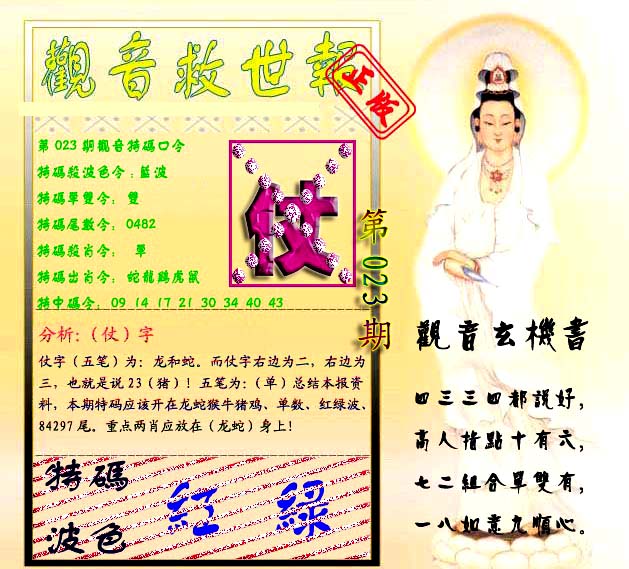 觀音救世報
正版
第023期觀音特碼口令
特碼殺波色令:藍波
特碼單雙令: 雙
特碼尾數令: 0482
特碼殺肖令: 單
特碼出肖令: 蛇龍鷄虎鼠
特中碼令: 09 14 17 21 30 34 40 43
仗
第023期
分析:(仗)字
仗字(五笔)为:龙和蛇。而仗字右边为二,右边为
三,也就是说23(猪)!五笔为:(单)总结本报资
料,本期特码应该开在龙蛇猴牛猪鸡、单数、红绿波、
84297尾。重点两肖应放在(龙蛇)身上!
特碼
波色
紅 綠
觀音玄機書
四三三四都說好,
高人指點十有六,
七二組合單雙有,
一八如意九順心。